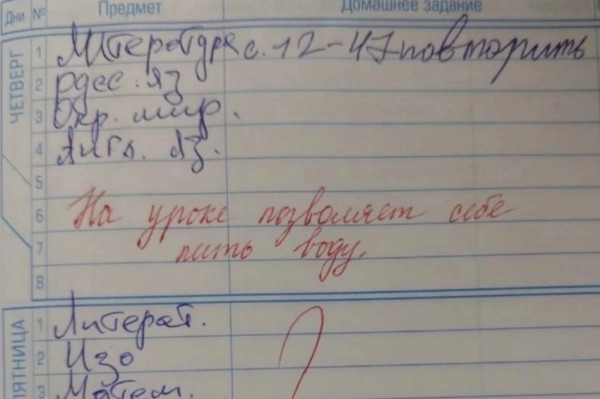 Дни № Предмет Домашнее задание
ЧЕТВЕРГ
1 Литература с. 12-47 повторить
2 русс. яз
3 Окр. мир.
4 Англ. яз.
5
6 На уроке позволяет себе
7 пить воду.
8
ПЯТНИЦА
1 Литерат.
2 Изо
3 Матем.